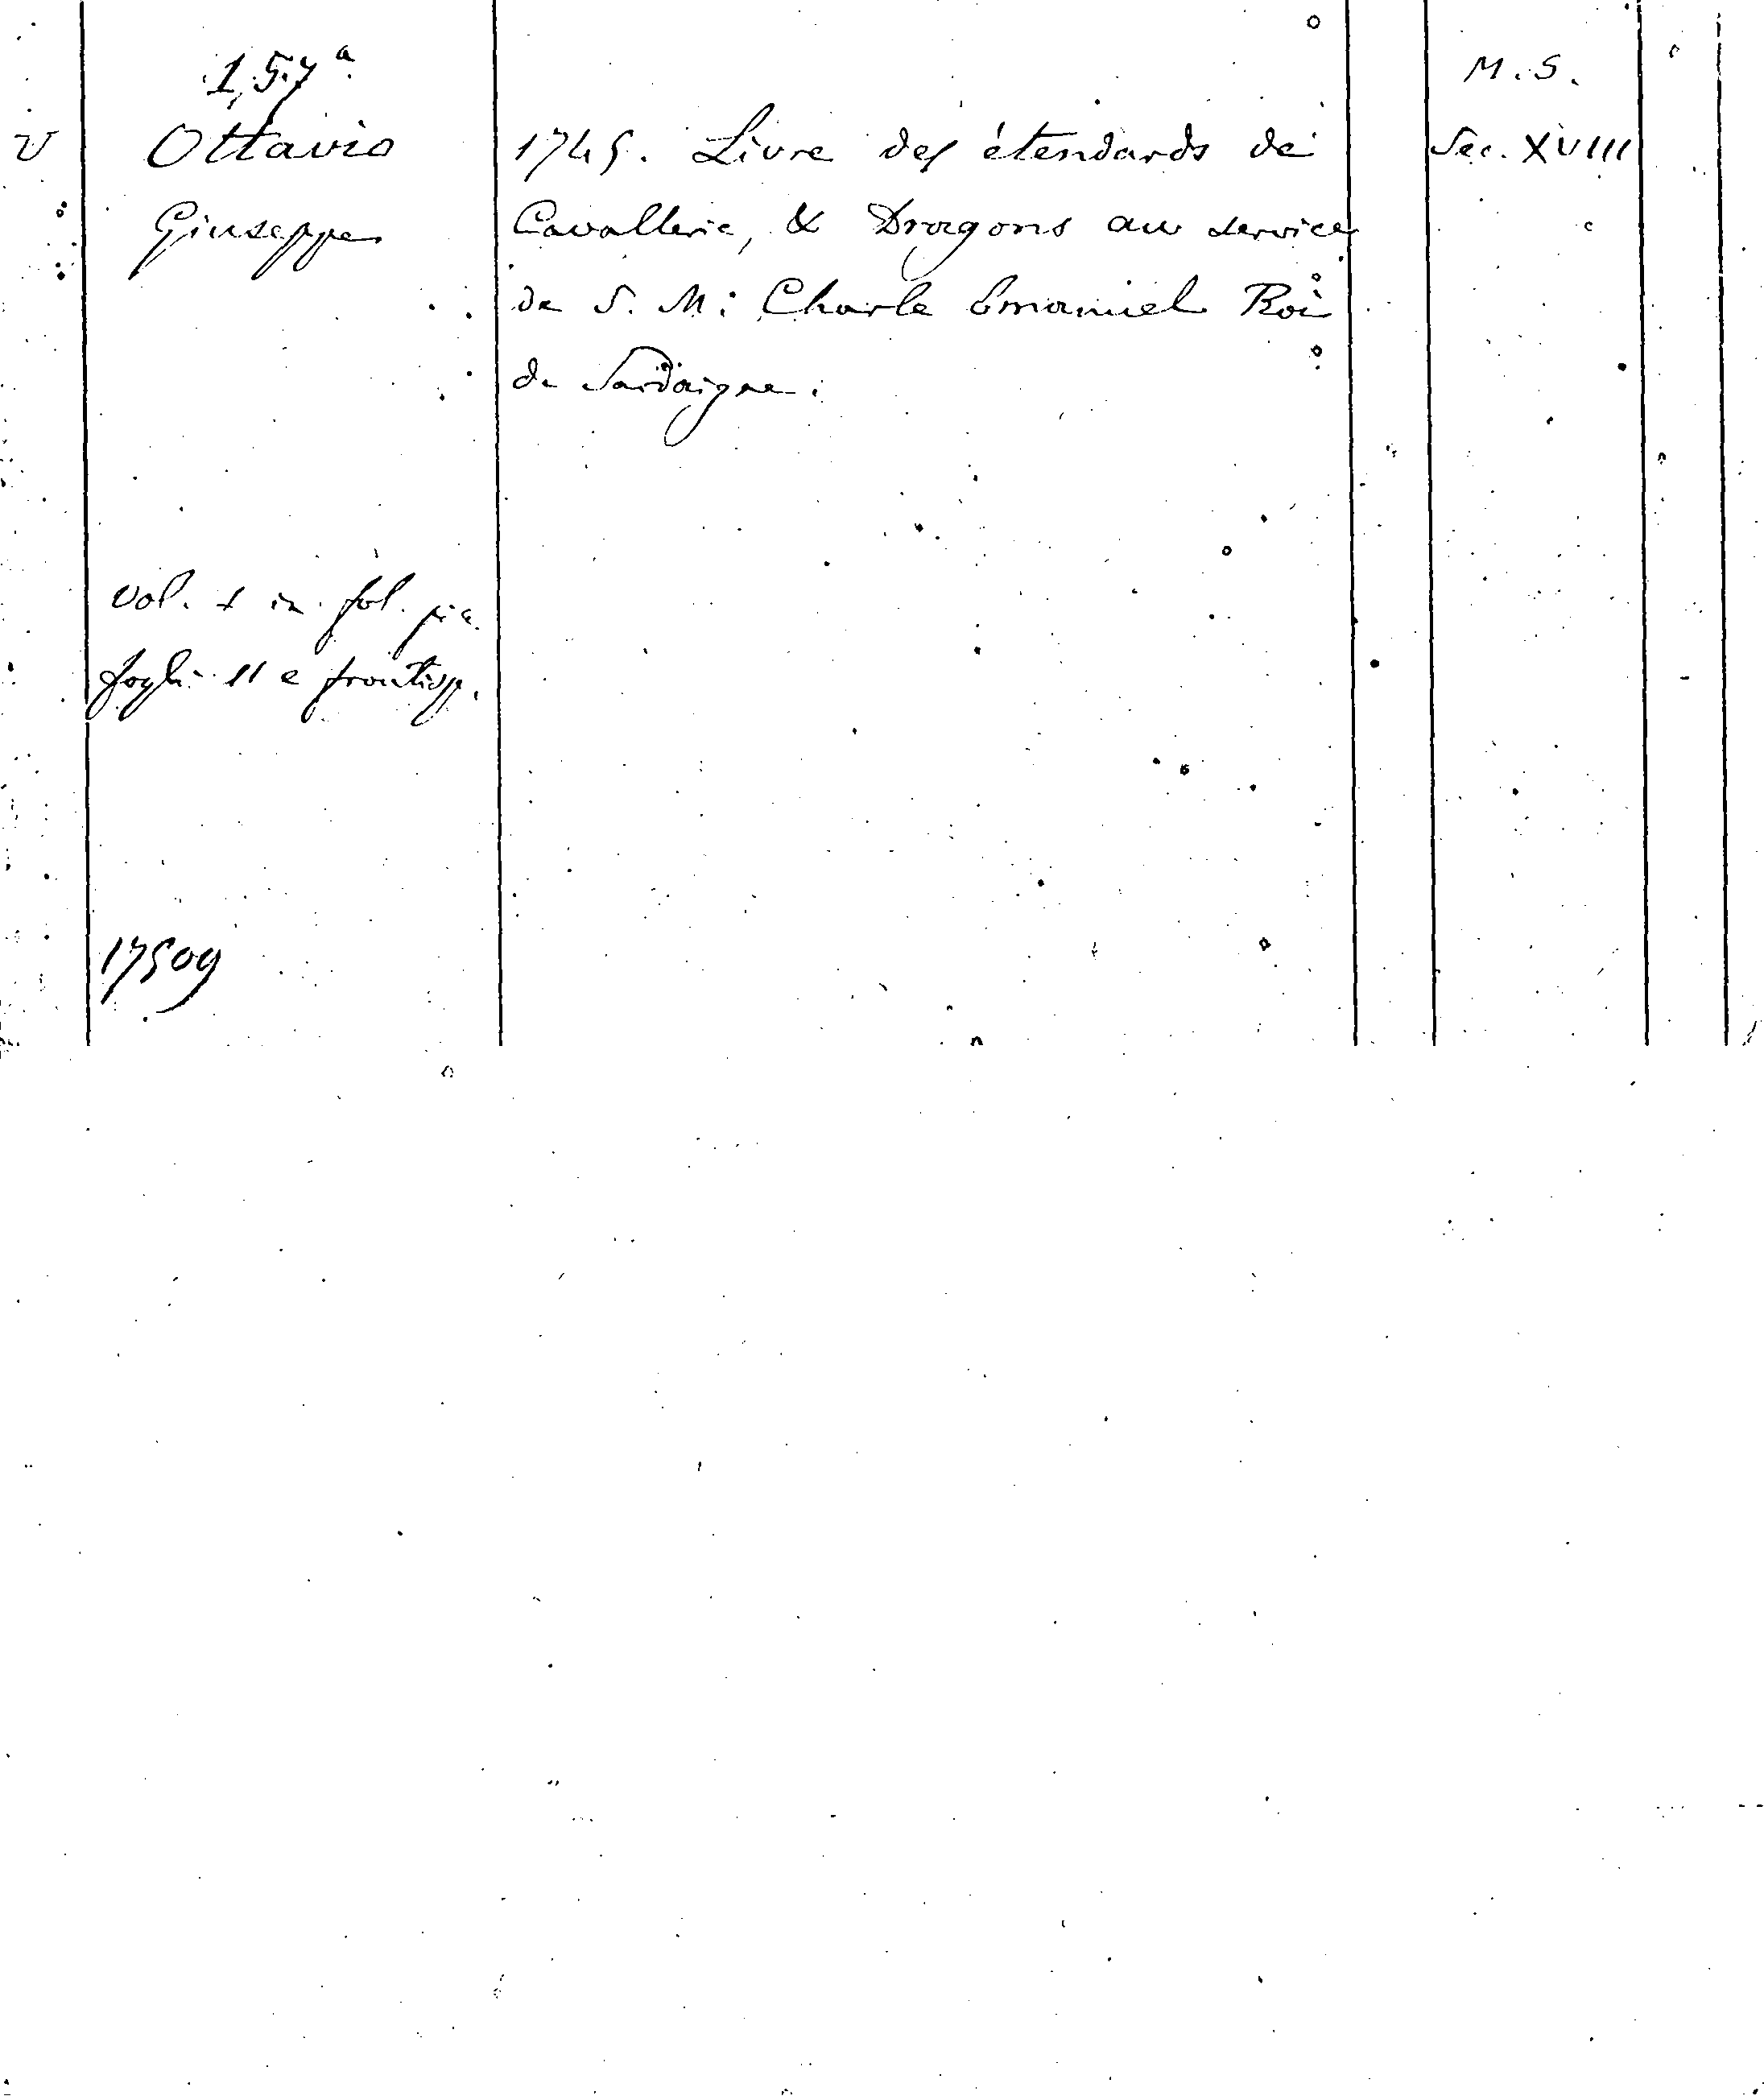 157 a
M. S.
V
Ottavio
Giuseppe
1745. Livre des étendards de
Cavallerie, & Dragons au service
de S. M: Charle Emanuel Roi
de Sardaigne.
Sec. XVIII
Vol. 1 in fol. pic.
fogli 11 e frontisp.
17509